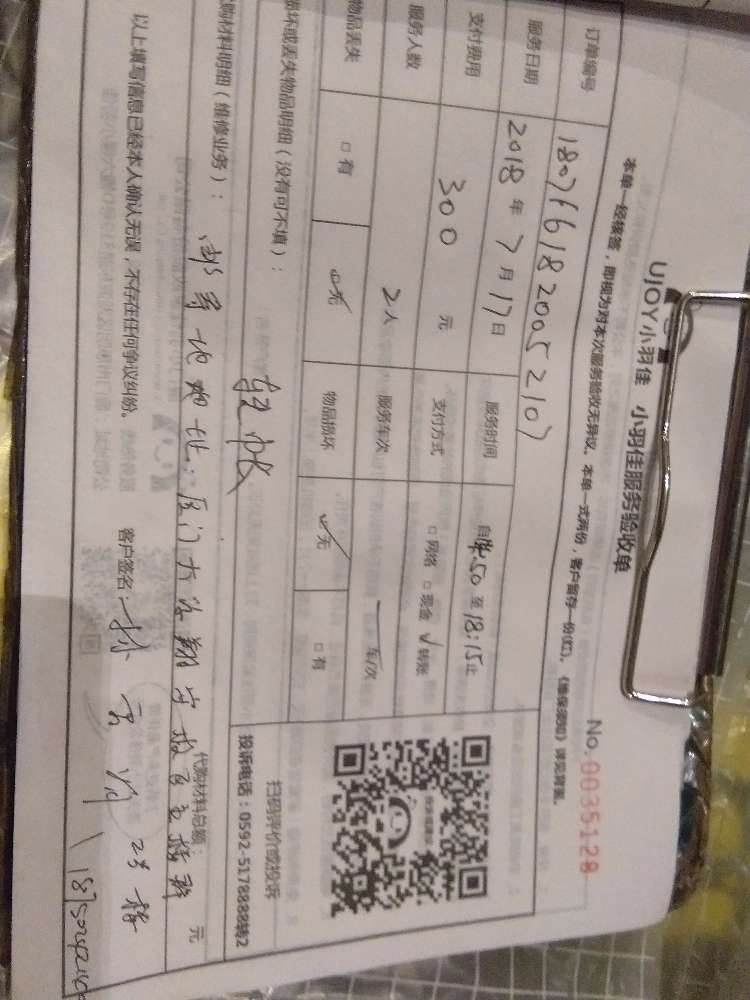 UJOY小羽佳 小羽佳服务验收单
No. 0035128
本单一经签署,即视为对本次服务验收无异议。本单一式两份,客户留存一份(红)。
订单编号 180761820052107
服务日期 2018 年 7 月 17 日 服务时间 自 :50 至 18:15 止
支付费用 300 元 支付方式 □ 网络 □ 现金 √ 转账
服务人数 2人 服务车次 一 车/次
物品丢失 □ 有 ☑ 无 物品损坏 ☑ 无 □ 有
损坏或丢失物品明细(没有可不填):
扫码评价或投诉
投诉电话:0592-5178888转2
购材料明细(维修业务):
代购材料总额: 元
地址:厦门大学翔安校区主楼群
2号楼
以上填写信息已经本人确认无误,不存在任何争议纠纷。 客户签名: